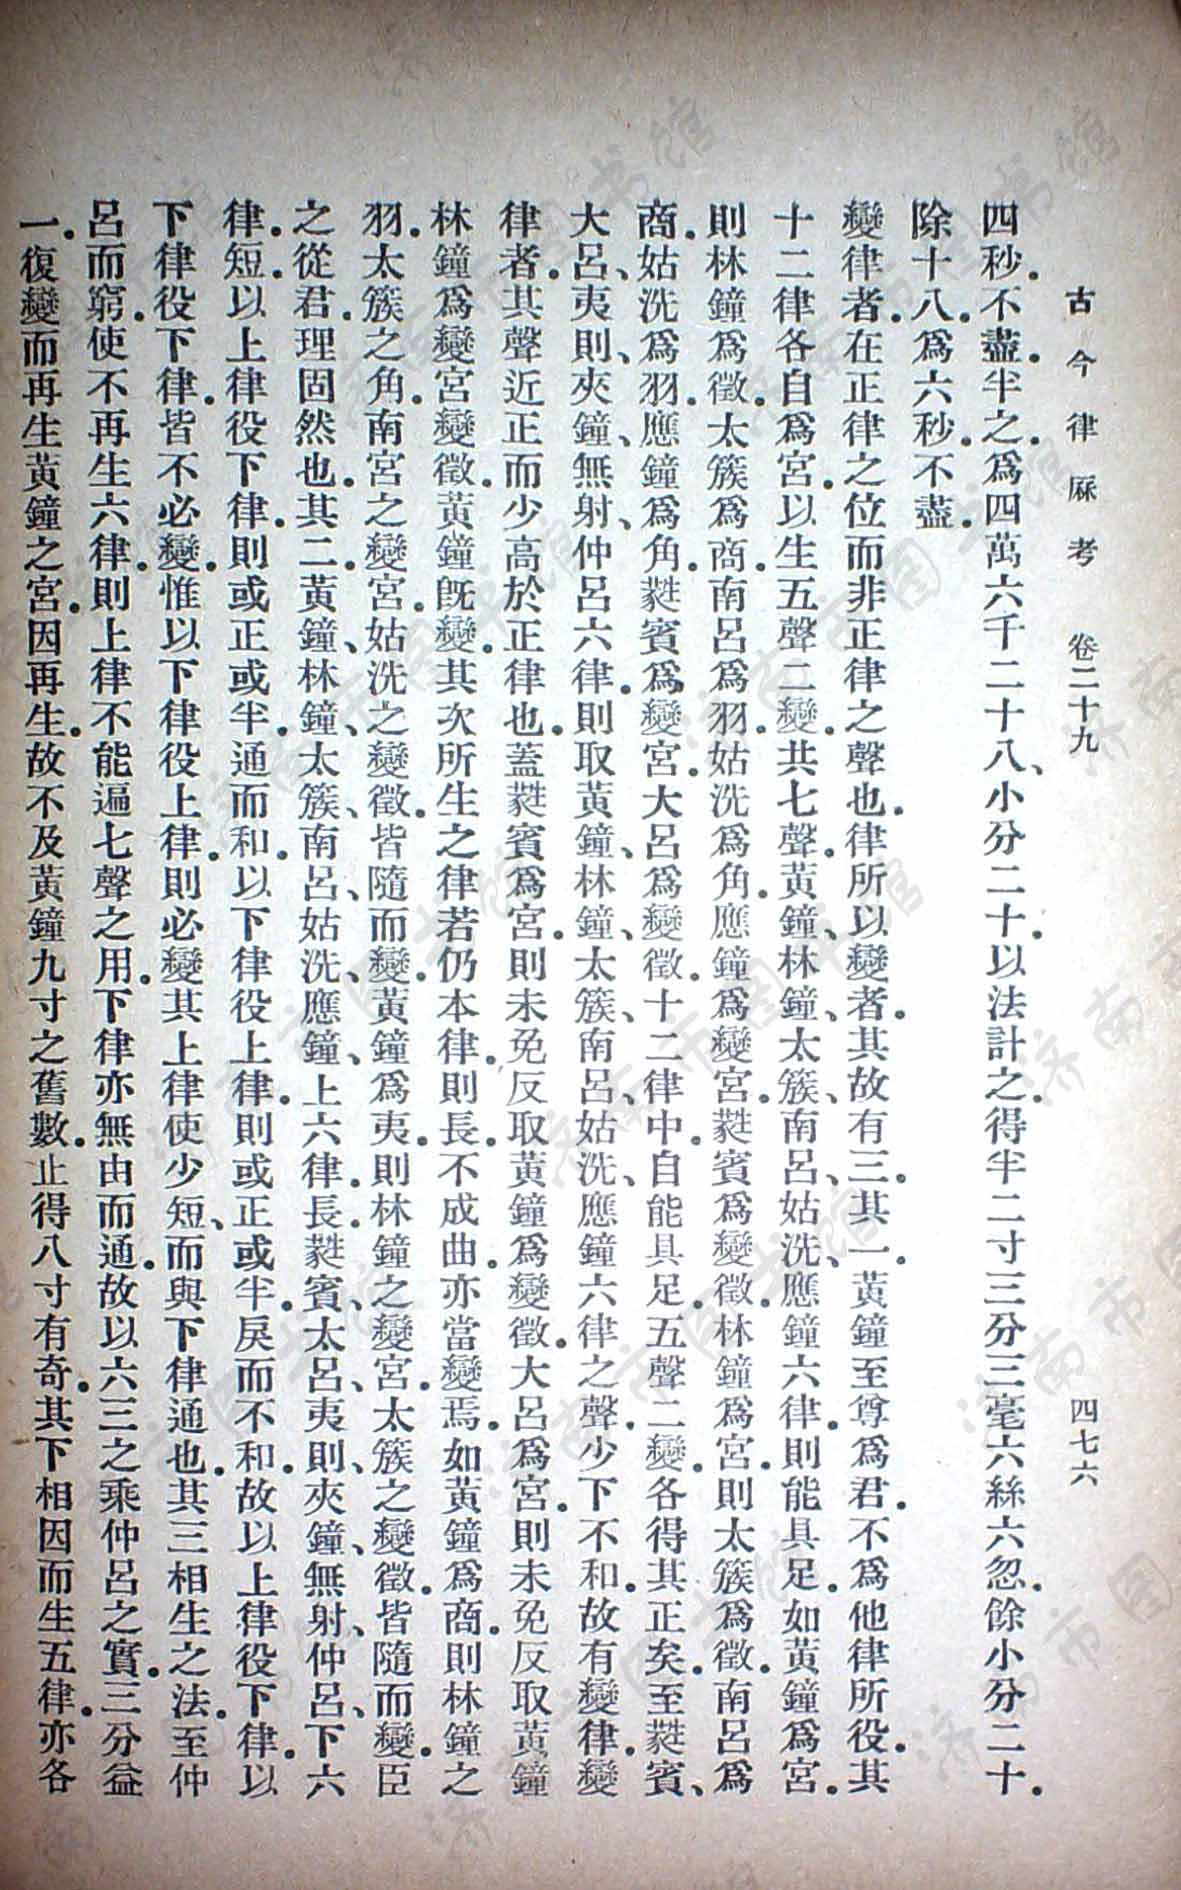 古今律厤考　卷二十九　四七六
四秒。不盡。半之。爲四萬六千二十八、小分二十。以法計之。得半二寸三分三毫六絲六忽。餘小分二十。
除十八。爲六秒。不盡。
變律者。在正律之位而非正律之聲也。律所以變者。其故有三。其一。黃鐘至尊爲君。不爲他律所役。其
十二律各自爲宮。以生五聲二變。共七聲。黃鐘、林鐘、太簇、南呂、姑洗、應鐘六律。則能具足。如黃鐘爲宮。
則林鐘爲徵。太簇爲商。南呂爲羽。姑洗爲角。應鐘爲變宮。蕤賓爲變徵。林鐘爲宮。則太簇爲徵。南呂爲
商。姑洗爲羽。應鐘爲角。蕤賓爲變宮。大呂爲變徵。十二律中。自能具足。五聲二變。各得其正矣。至蕤賓、
大呂、夷則、夾鐘、無射、仲呂六律。則取黃鐘、林鐘、太簇、南呂、姑洗、應鐘六律之聲。少下不和。故有變律。變
律者。其聲近正而少高於正律也。蓋蕤賓爲宮。則未免反取黃鐘爲變徵。大呂爲宮。則未免反取黃鐘
林鐘爲變宮變徵。黃鐘旣變。其次所生之律若仍本律。則長。不成曲。亦當變焉。如黃鐘爲商。則林鐘之
羽。太簇之角。南宮之變宮。姑洗之變徵。皆隨而變。黃鐘爲夷。則林鐘之變宮。太簇之變徵。皆隨而變。臣
之從君。理固然也。其二。黃鐘、林鐘、太簇、南呂、姑洗、應鐘、上六律。長。蕤賓、太呂、夷則、夾鐘、無射、仲呂、下六
律。短。以上律役下律。則或正或半。通而和。以下律役上律。則或正或半。戾而不和。故以上律役下律。以
下律役下律。皆不必變。惟以下律役上律。則必變其上律使少短、而與下律通也。其三相生之法。至仲
呂而窮。使不再生六律。則上律不能遍七聲之用。下律亦無由而通。故以六三之乘仲呂之實。三分益
一。復變而再生黃鐘之宮。因再生。故不及黃鐘九寸之舊數。止得八寸有奇。其下相因而生五律。亦各